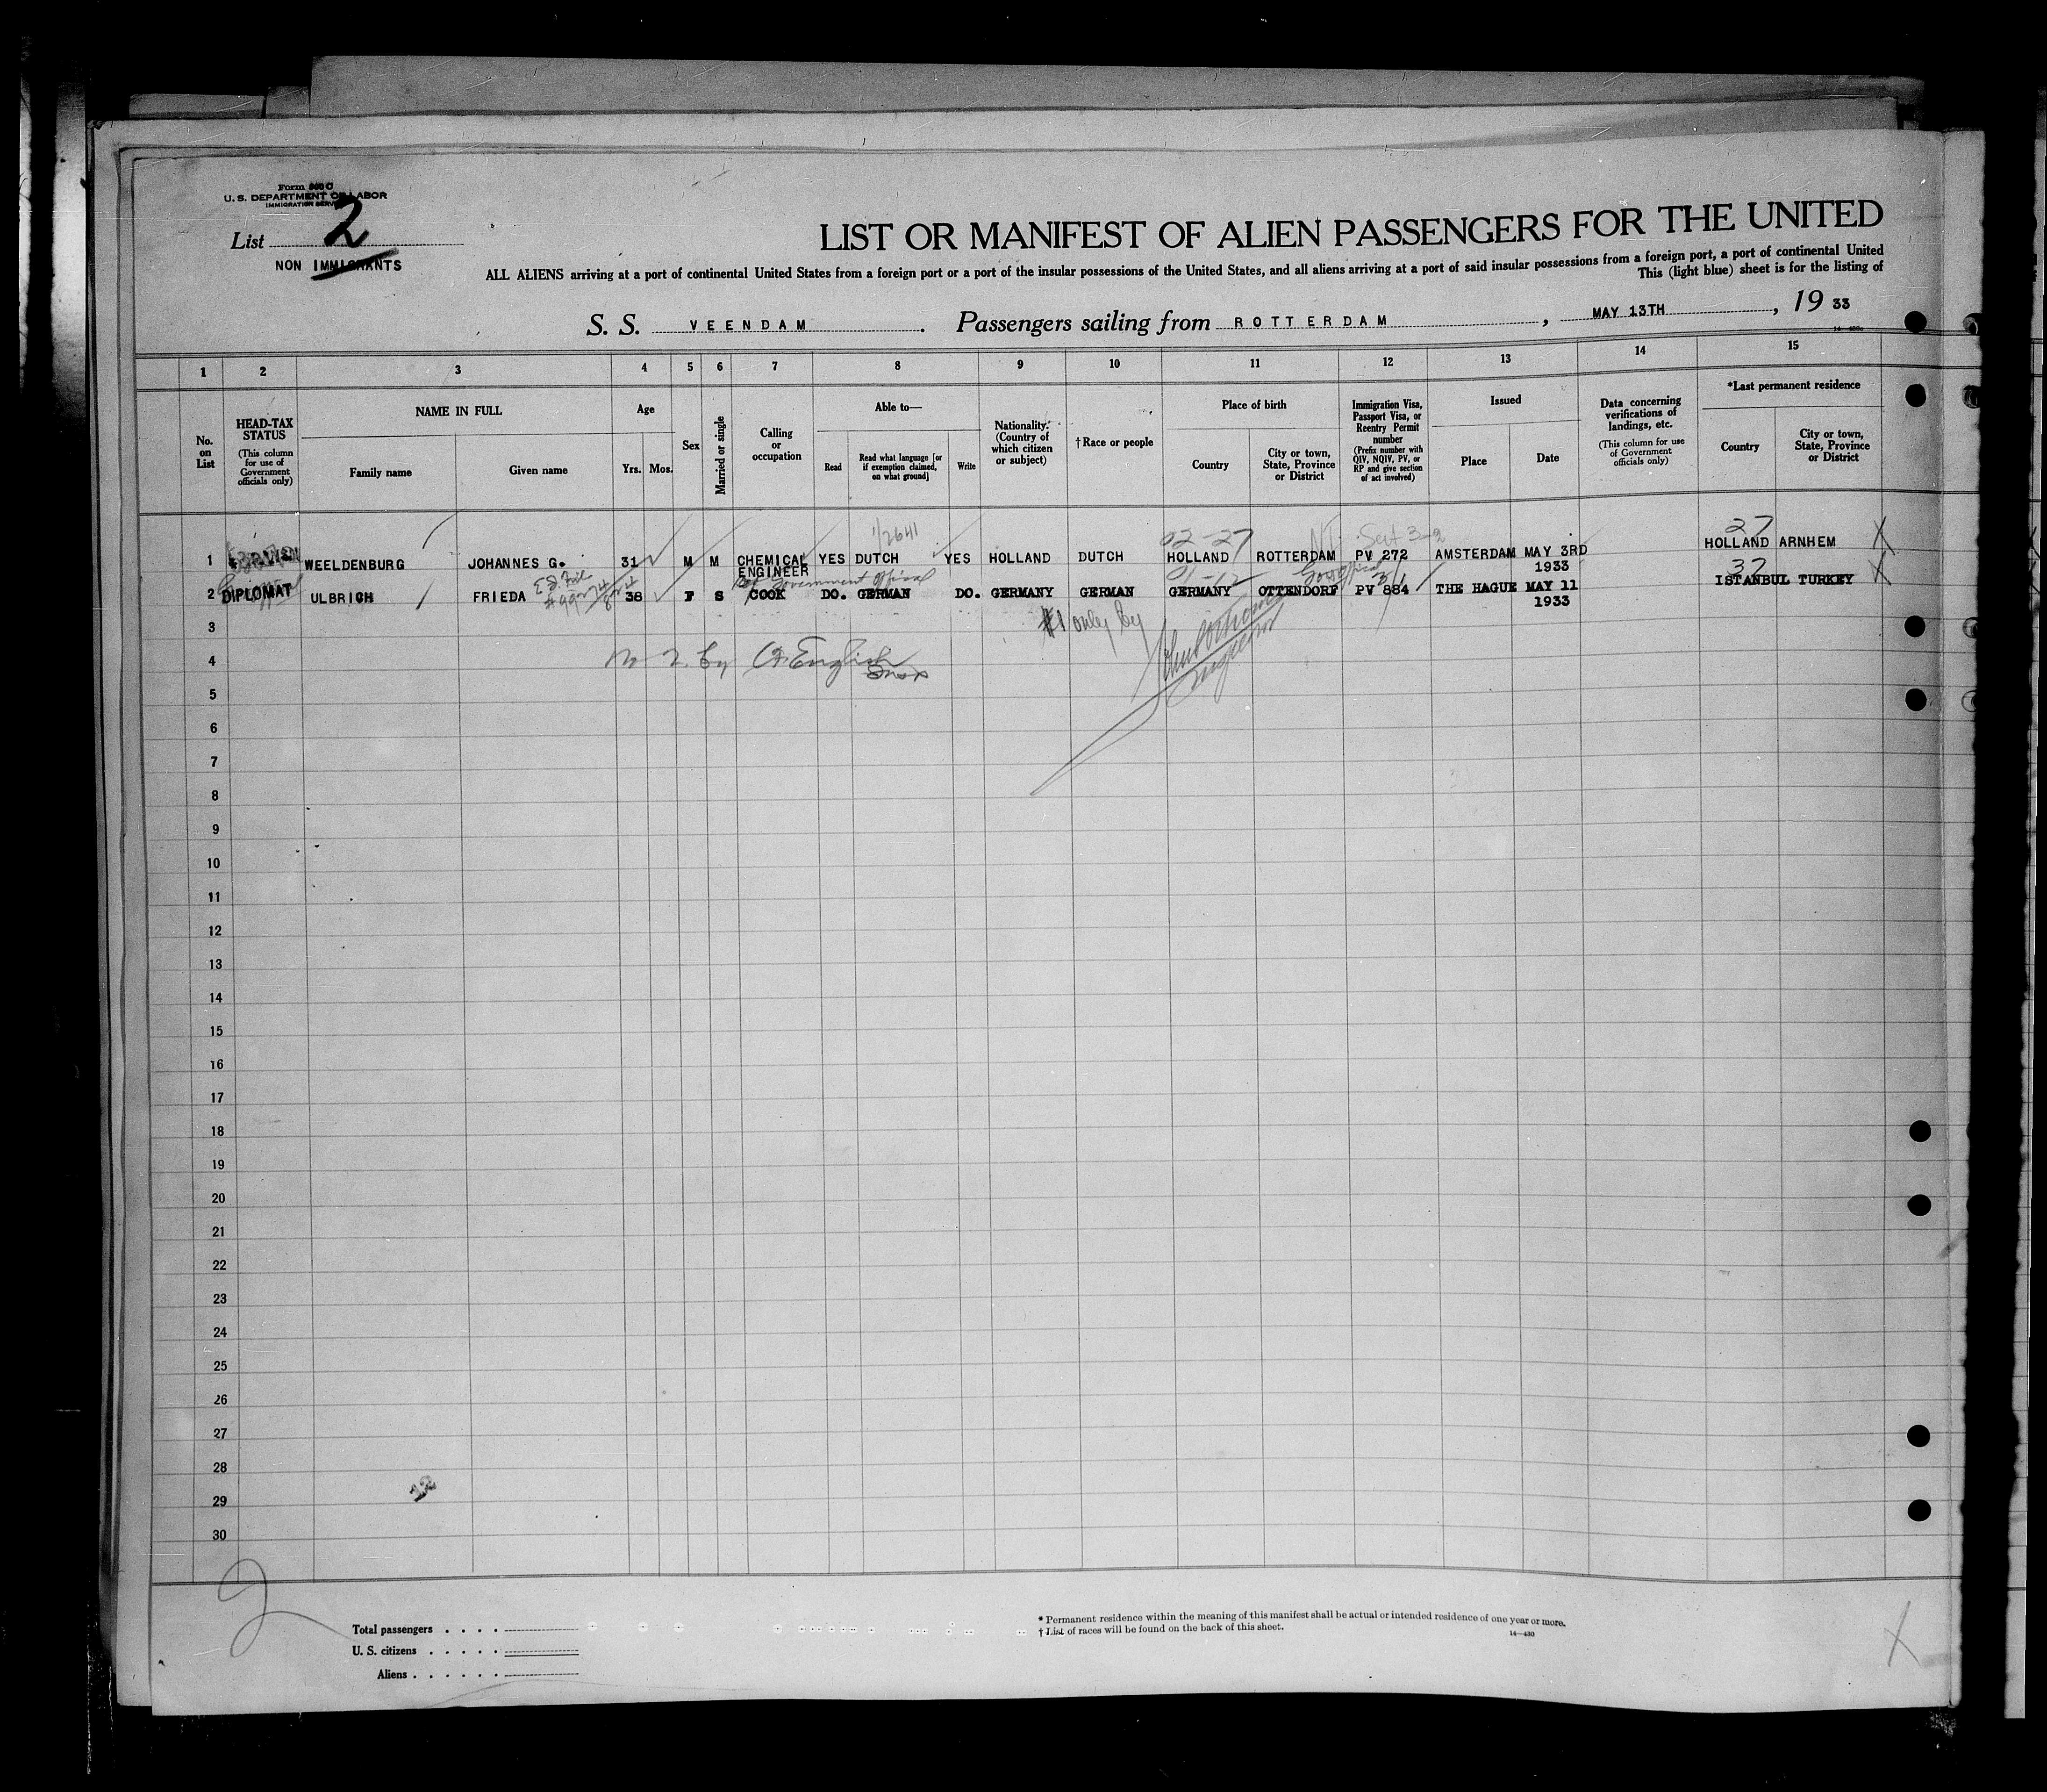 Form 500 C
U. S. DEPARTMENT OF LABOR
IMMIGRATION SERVICE
List 2
NON IMMIGRANTS
LIST OR MANIFEST OF ALIEN PASSENGERS FOR THE UNITED
ALL ALIENS arriving at a port of continental United States from a foreign port or a port of the insular possessions of the United States, and all aliens arriving at a port of said insular possessions from a foreign port, a port of continental United
This (light blue) sheet is for the listing of
S. S. VEENDAM . Passengers sailing from ROTTERDAM , MAY 13TH , 19 33
1 2 3 4 5 6 7 8 9 10 11 12 13 14 15
No. on List
HEAD-TAX STATUS (This column for use of Government officials only)
NAME IN FULL
Family name
Given name
Age
Yrs. Mos.
Sex
Married or single
Calling or occupation
Able to—
Read
Read what language [or if exemption claimed, on what ground]
Write
Nationality. (Country of which citizen or subject)
†Race or people
Place of birth
Country
City or town, State, Province or District
Immigration Visa, Passport Visa, or Reentry Permit number (Prefix number with QIV, NQIV, PV, or RP and give section of act involved)
Issued
Place
Date
Data concerning verifications of landings, etc. (This column for use of Government officials only)
*Last permanent residence
Country
City or town, State, Province or District
1/2641 02-27 Sect 3-2 27
1 WEELDENBURG JOHANNES G. 31 M M CHEMICAL ENGINEER YES DUTCH YES HOLLAND DUTCH HOLLAND ROTTERDAM PV 272 AMSTERDAM MAY 3RD 1933 HOLLAND ARNHEM X
Government Official 37
2 DIPLOMAT ULBRICH FRIEDA 38 F S COOK DO. GERMAN DO. GERMANY GERMAN GERMANY OTTENDORF PV 884 THE HAGUE MAY 11 1933 ISTANBUL TURKEY X
3 #1 only by
4 by English
5
6
7
8
9
10
11
12
13
14
15
16
17
18
19
20
21
22
23
24
25
26
27
28
29
30
2
Total passengers
U. S. citizens
Aliens
* Permanent residence within the meaning of this manifest shall be actual or intended residence of one year or more.
† List of races will be found on the back of this sheet.
14—430
X